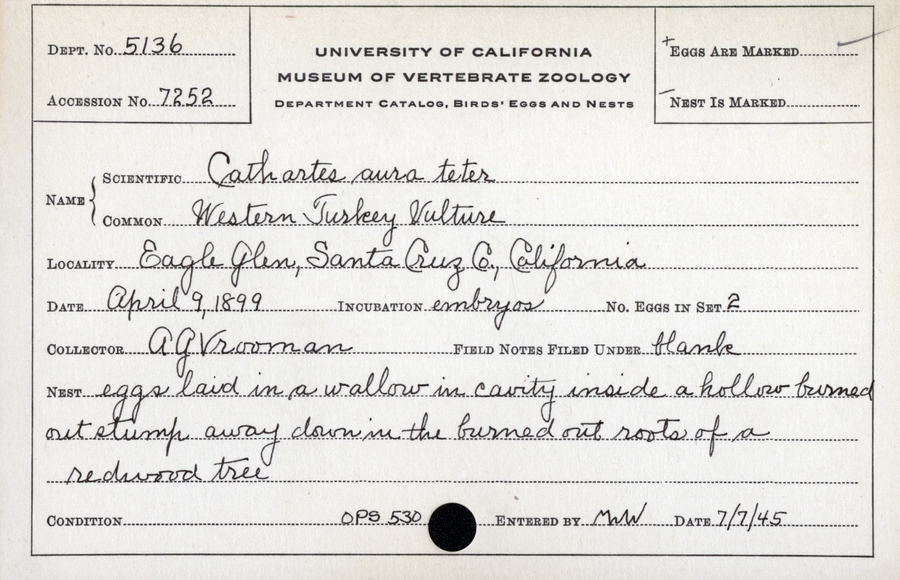 DEPT. NO. 5136
ACCESSION NO. 7252
UNIVERSITY OF CALIFORNIA
MUSEUM OF VERTEBRATE ZOOLOGY
DEPARTMENT CATALOG, BIRDS' EGGS AND NESTS
+EGGS ARE MARKED
-NEST IS MARKED
NAME
SCIENTIFIC Cathartes aura teter
COMMON Western Turkey Vulture
LOCALITY Eagle Glen, Santa Cruz Co., California
DATE April 9, 1899 INCUBATION embryos NO. EGGS IN SET 2
COLLECTOR AGVrooman FIELD NOTES FILED UNDER blank
NEST eggs laid in a wallow in cavity inside a hollow burned
out stump away down in the burned out roots of a
redwood tree
CONDITION OPS 530 ENTERED BY MWW DATE 7/7/45